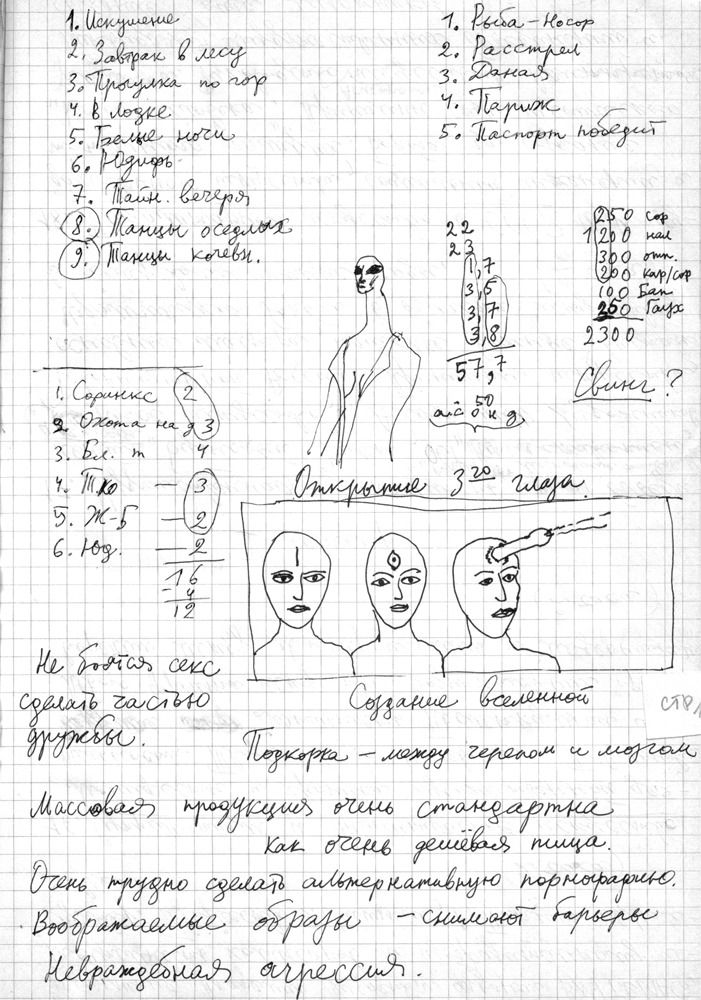 1. Искушение
2. Завтрак в лесу
3. Прогулка по гор
4. В лодке
5. Белые ночи
6. Юдифь
7. Тайн. вечеря
8. Танцы оседлых
9. Танцы кочевн.
1. Рыба-Носор
2. Расстрел
3. Даная
4. Париж
5. Паспорт победит
22
23
1,7
3,5
3,7
3,8
57,7
50
250 сор
1 200 нал
300 отп.
200 кар/сор
100 Бап
250 Гаух
2300
Свинг?
1. Соринкс 2
2. Охота на д 3
3. Бл. т 4
4. — 3
5. Ж-Б — 2
6. Юд. — 2
16
- 4
12
Открытие 3го глаза
Не боятся секс
сделать частью
дружбы.
Создание вселенной
стр
Подкорка — между черепом и мозгом
Массовая продукция очень стандартна
как очень дешёвая пища.
Очень трудно сделать альтернативную порнографию.
Воображаемые образы — снимают барьеры
Невраждебная агрессия.